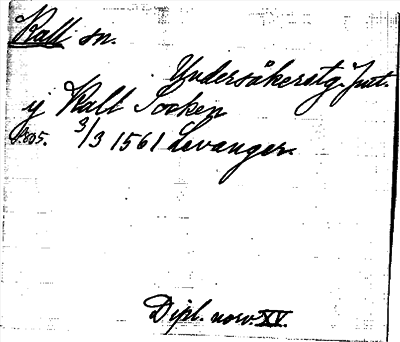 Kall sn.
Undersåkerstg. Jmt.
y Kall Socken
S. 805. 3/3 1561 Levanger.
Dipl. norv. XV.